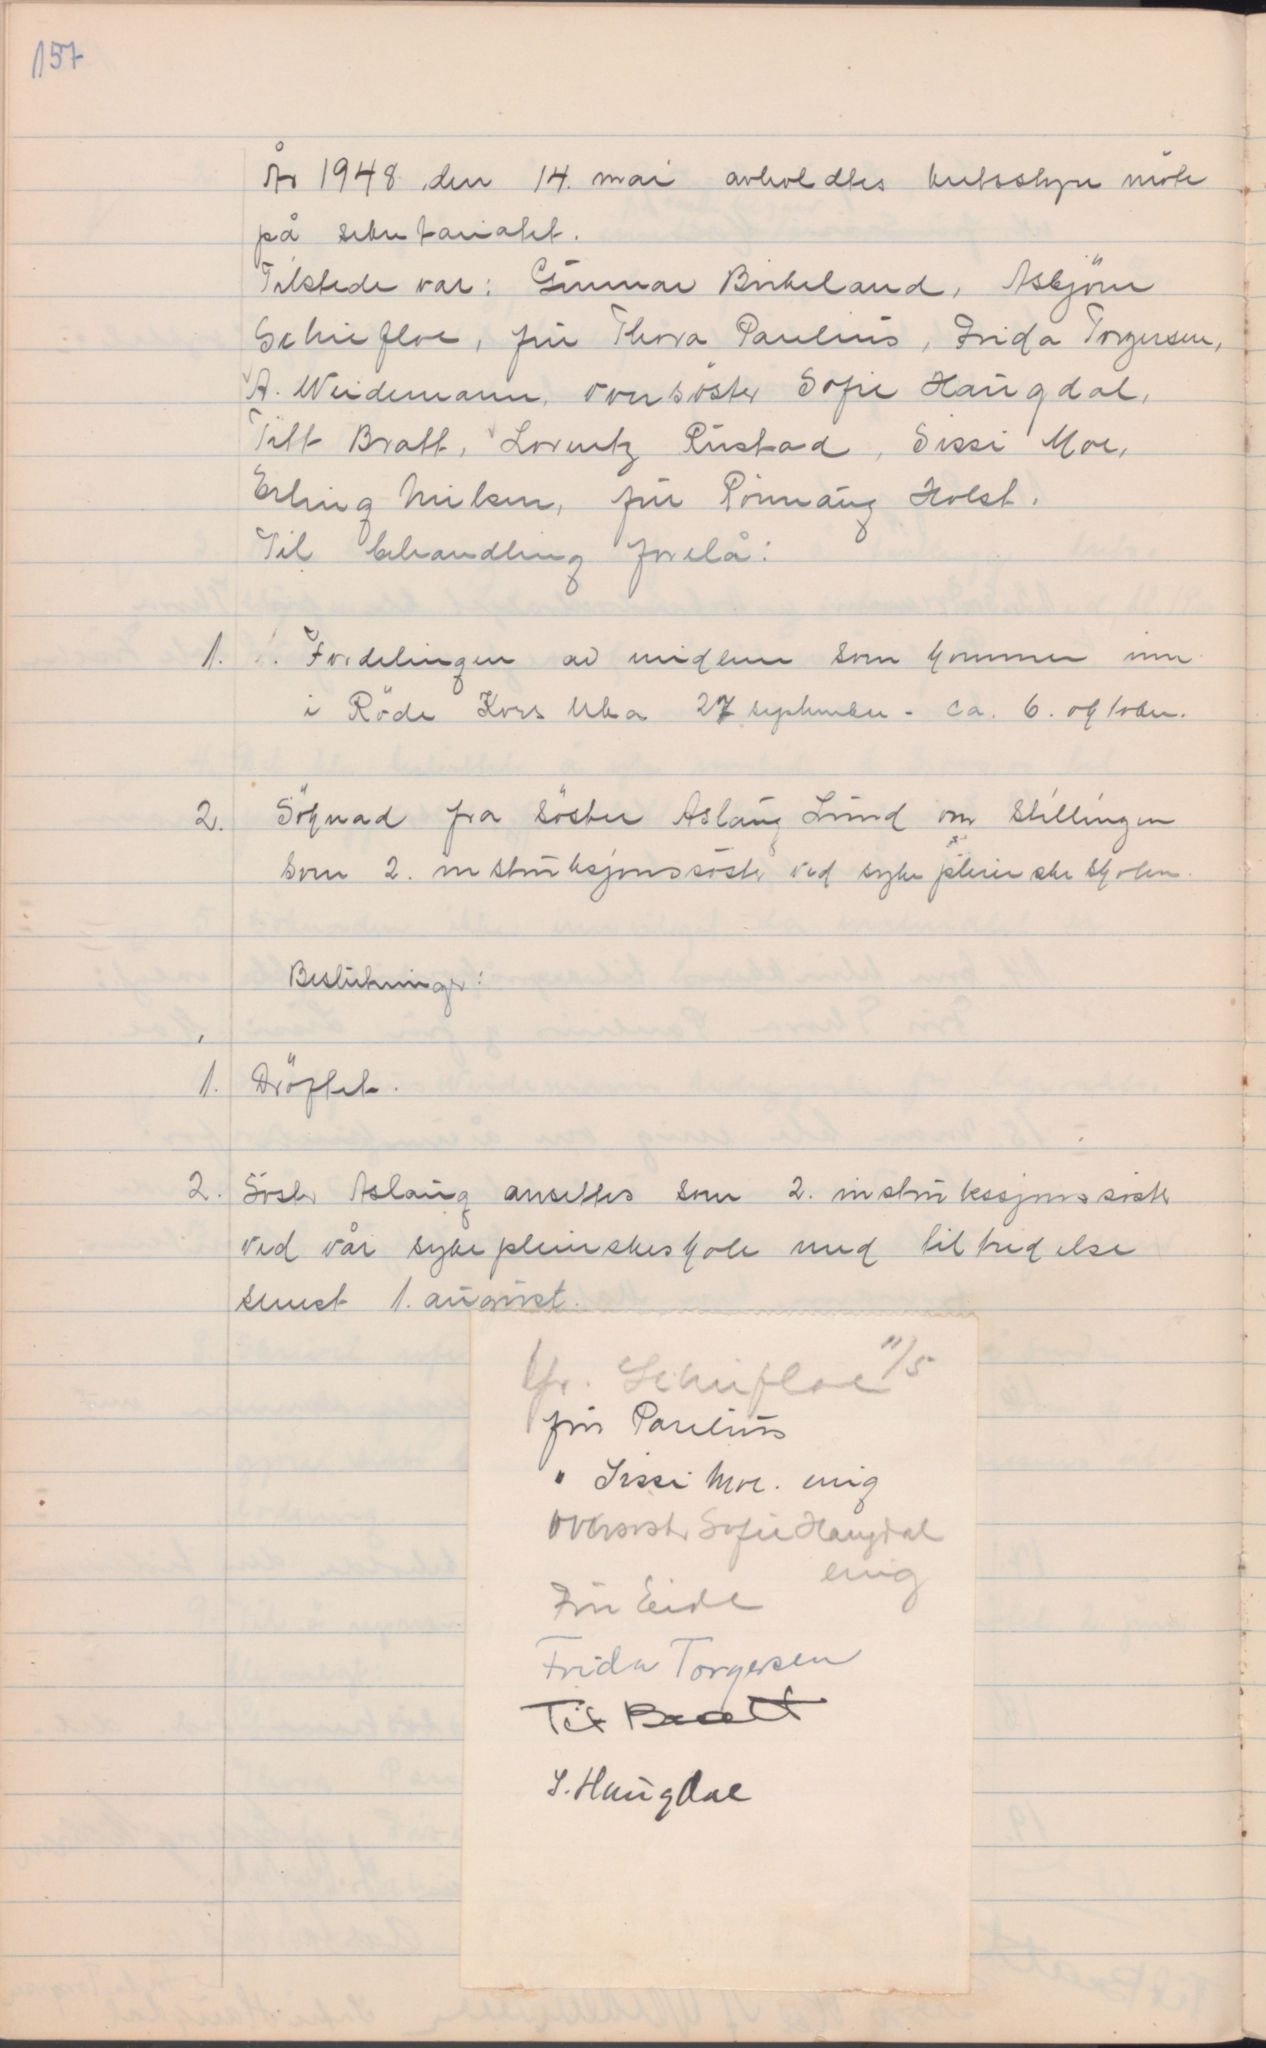 157
År 1948 den 14. mai avholdtes kretsstyre möte
på sekretariatet.
Tilstede var: Gunnar Birkeland, Asbjörn
Schiefloe, fru Thora Paulius, Frida Torgersen,
A. Weidemann, oversöster Sofie Haugdal,
Titt Bratt, Lorentz Rustad, Sissi Moe,
Erling Nilsen, fru Rönnaug Holst.
Til behandling forelå:
1. Fordelingen av midlene som kommer inn
i Röde Kors Uka 27 september - ca. 6. oktober.
2. Söknad fra söster Aslaug Lund om stillingen
som 2. instruksjonssöster ved sykepleierskeskolen.
Beslutninger:
1. Dröftet.
2. Söster Aslaug ansettes som 2. instrukssjonssöster
ved vår sykepleierskeskole med tiltredelse
senest 1. august.
fr. Schiefloe 11/5
fru Paulius
" Sissi Moe. enig
Oversöster Sofie Haugdal
enig
Fru Eide
Frida Torgersen
Tit Bratt
S. Haugdal